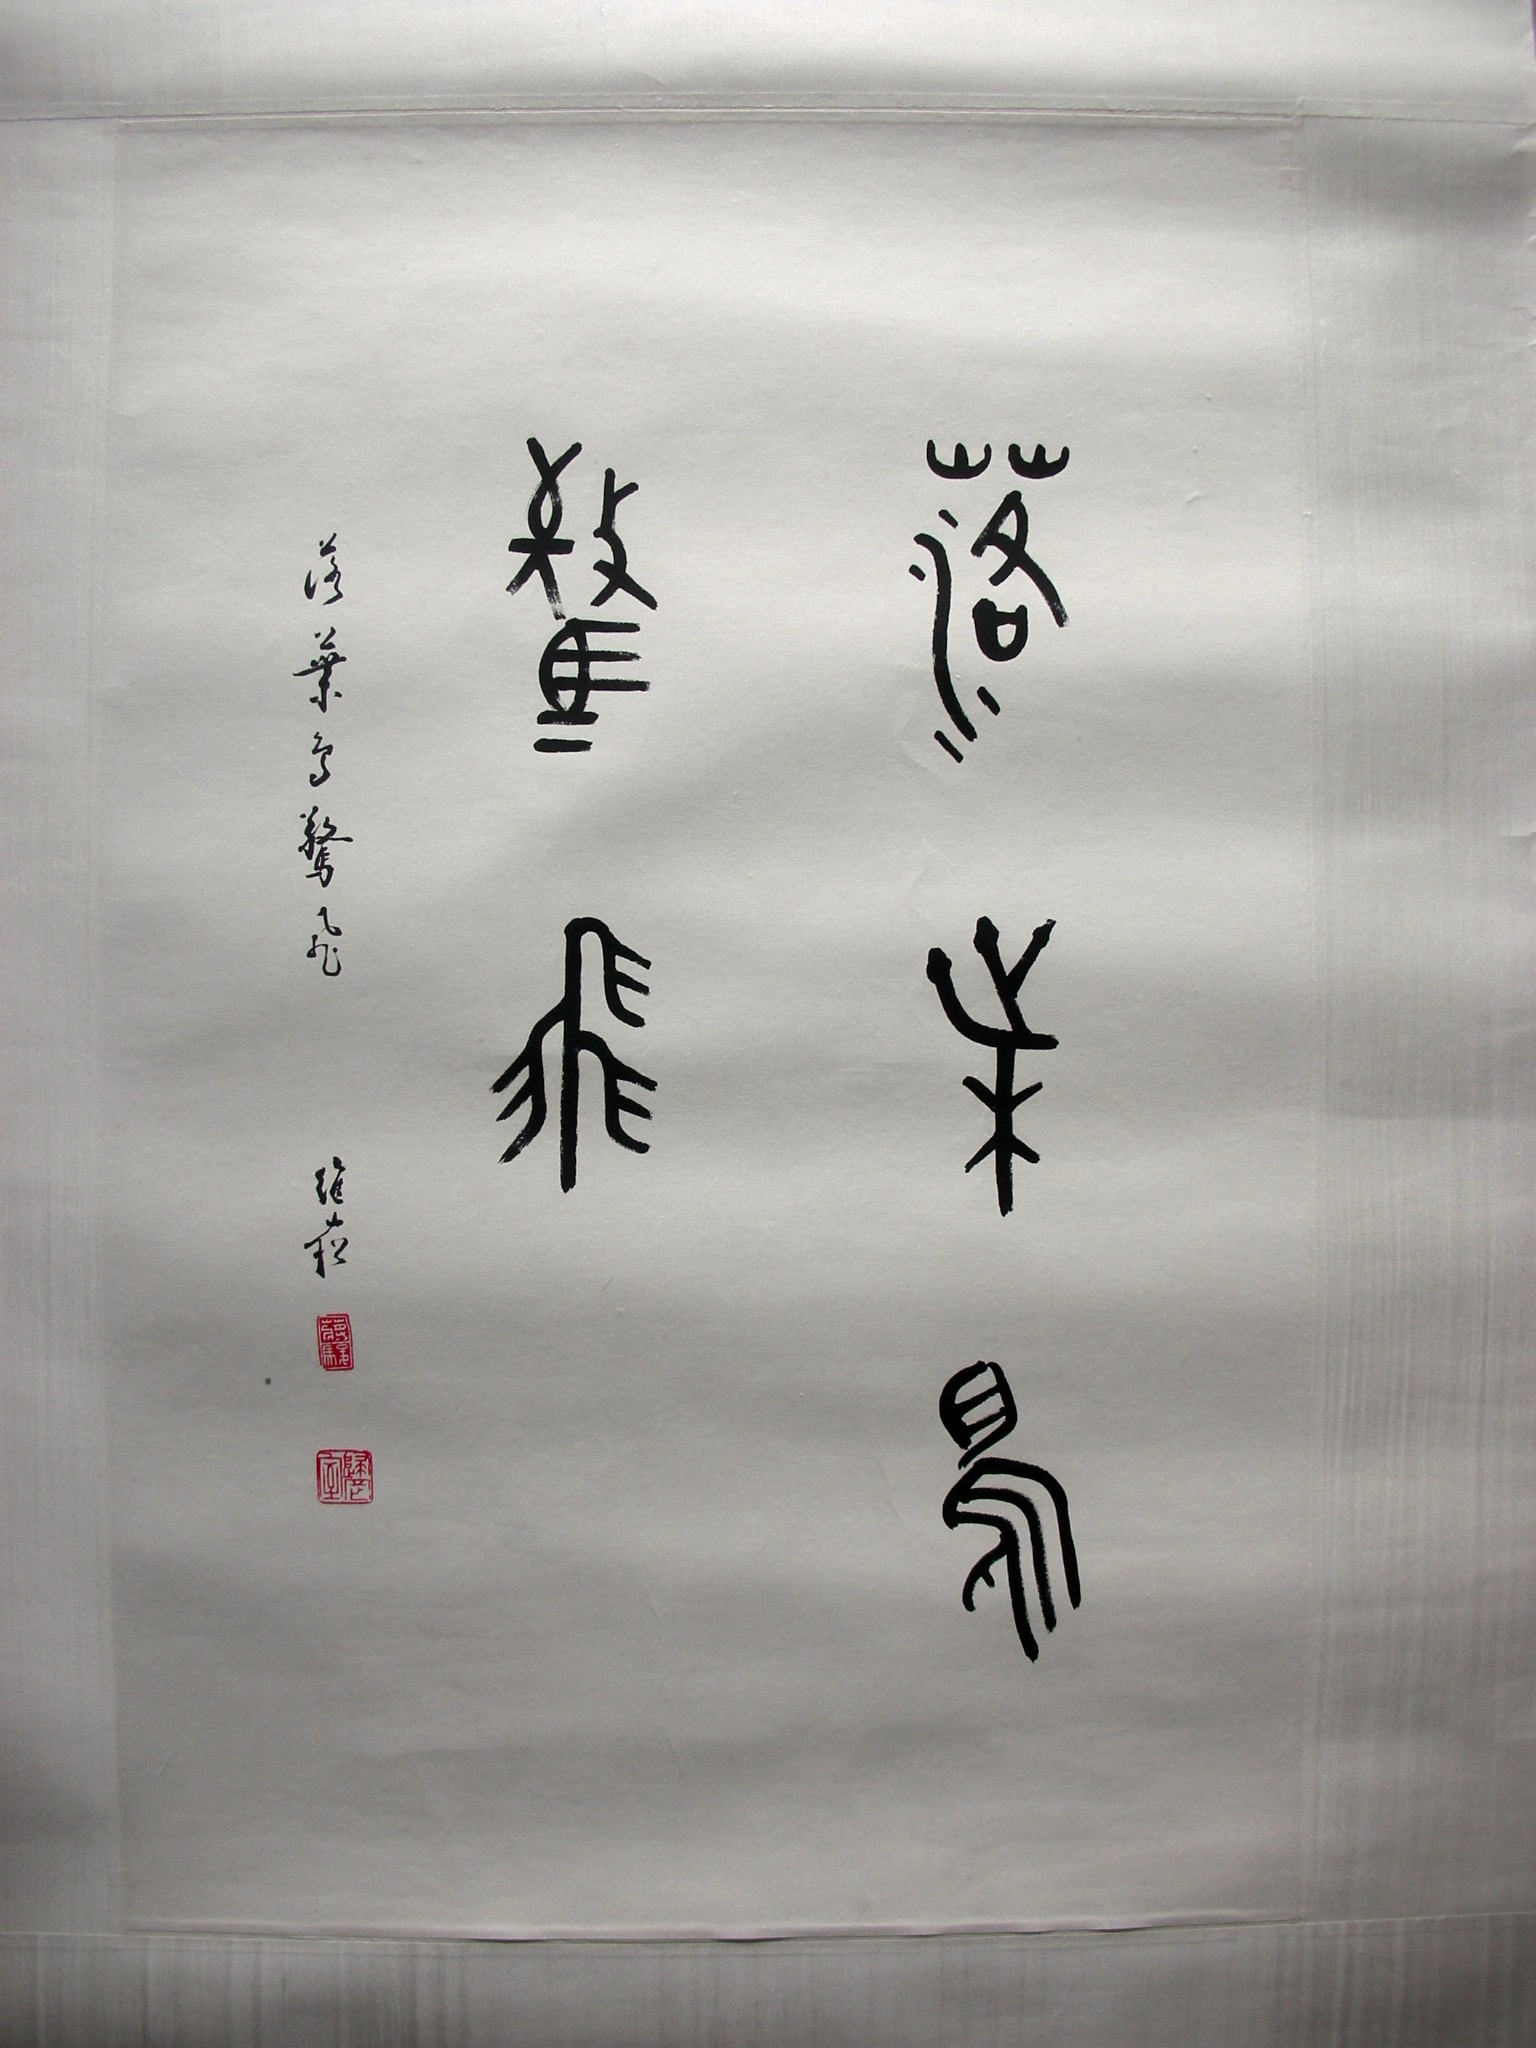 落葉鳥
驚飛
落葉鳥驚飛 維崧